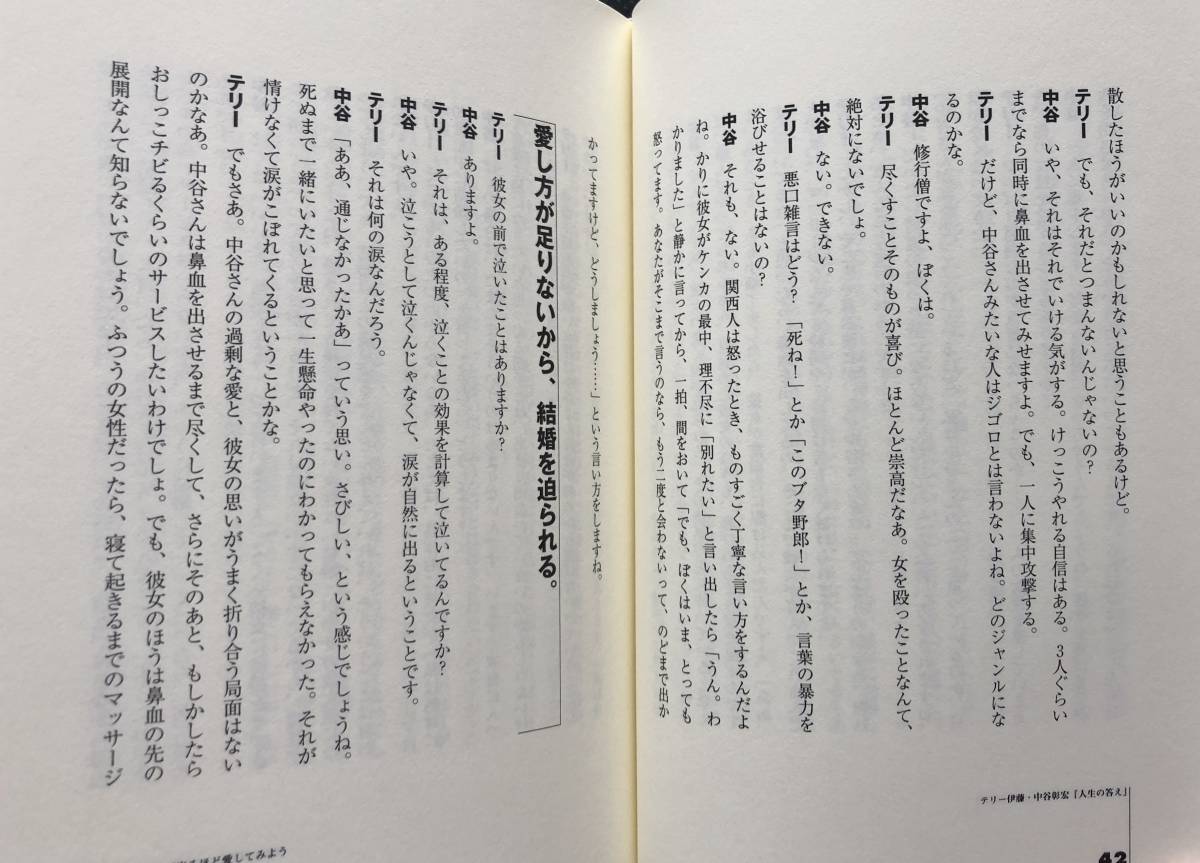 散したほうがいいのかもしれないと思うこともあるけど。
テリー　でも、それだとつまんないんじゃないの？
中谷　いや、それはそれでいける気がする。けっこうやれる自信はある。３人ぐらい
までなら同時に鼻血を出させてみせますよ。でも、一人に集中攻撃する。
テリー　だけど、中谷さんみたいな人はジゴロとは言わないよね。どのジャンルにな
るのかな。
中谷　修行僧ですよ、ぼくは。
テリー　尽くすことそのものが喜び。ほとんど崇高だなあ。女を殴ったことなんて、
絶対にないでしょ。
中谷　ない。できない。
テリー　悪口雑言はどう？「死ね！」とか「このブタ野郎！」とか、言葉の暴力を
浴びせることはないの？
中谷　それも、ない。関西人は怒ったとき、ものすごく丁寧な言い方をするんだよ
ね。かりに彼女がケンカの最中、理不尽に「別れたい」と言い出したら「うん。わ
かりました」と静かに言ってから、一拍、間をおいて「でも、ぼくはいま、とっても
怒ってます。あなたがそこまで言うのなら、もう二度と会わないって、のどまで出か
テリー伊藤・中谷彰宏「人生の答え」
42
かってますけど、どうしましょう……」という言い方をしますね。
愛し方が足りないから、結婚を迫られる。
テリー　彼女の前で泣いたことはありますか？
中谷　ありますよ。
テリー　それは、ある程度、泣くことの効果を計算して泣いてるんですか？
中谷　いや。泣こうとして泣くんじゃなくて、涙が自然に出るということです。
テリー　それは何の涙なんだろう。
中谷　「ああ、通じなかったかあ」っていう思い。さびしい、という感じでしょうね。
死ぬまで一緒にいたいと思って一生懸命やったのにわかってもらえなかった。それが
情けなくて涙がこぼれてくるということかな。
テリー　でもさあ。中谷さんの過剰な愛と、彼女の思いがうまく折り合う局面はない
のかなあ。中谷さんは鼻血を出させるまで尽くして、さらにそのあと、もしかしたら
おしっこチビるくらいのサービスしたいわけでしょ。でも、彼女のほうは鼻血の先の
展開なんて知らないでしょう。ふつうの女性だったら、寝て起きるまでのマッサージ
ほど愛してみよう